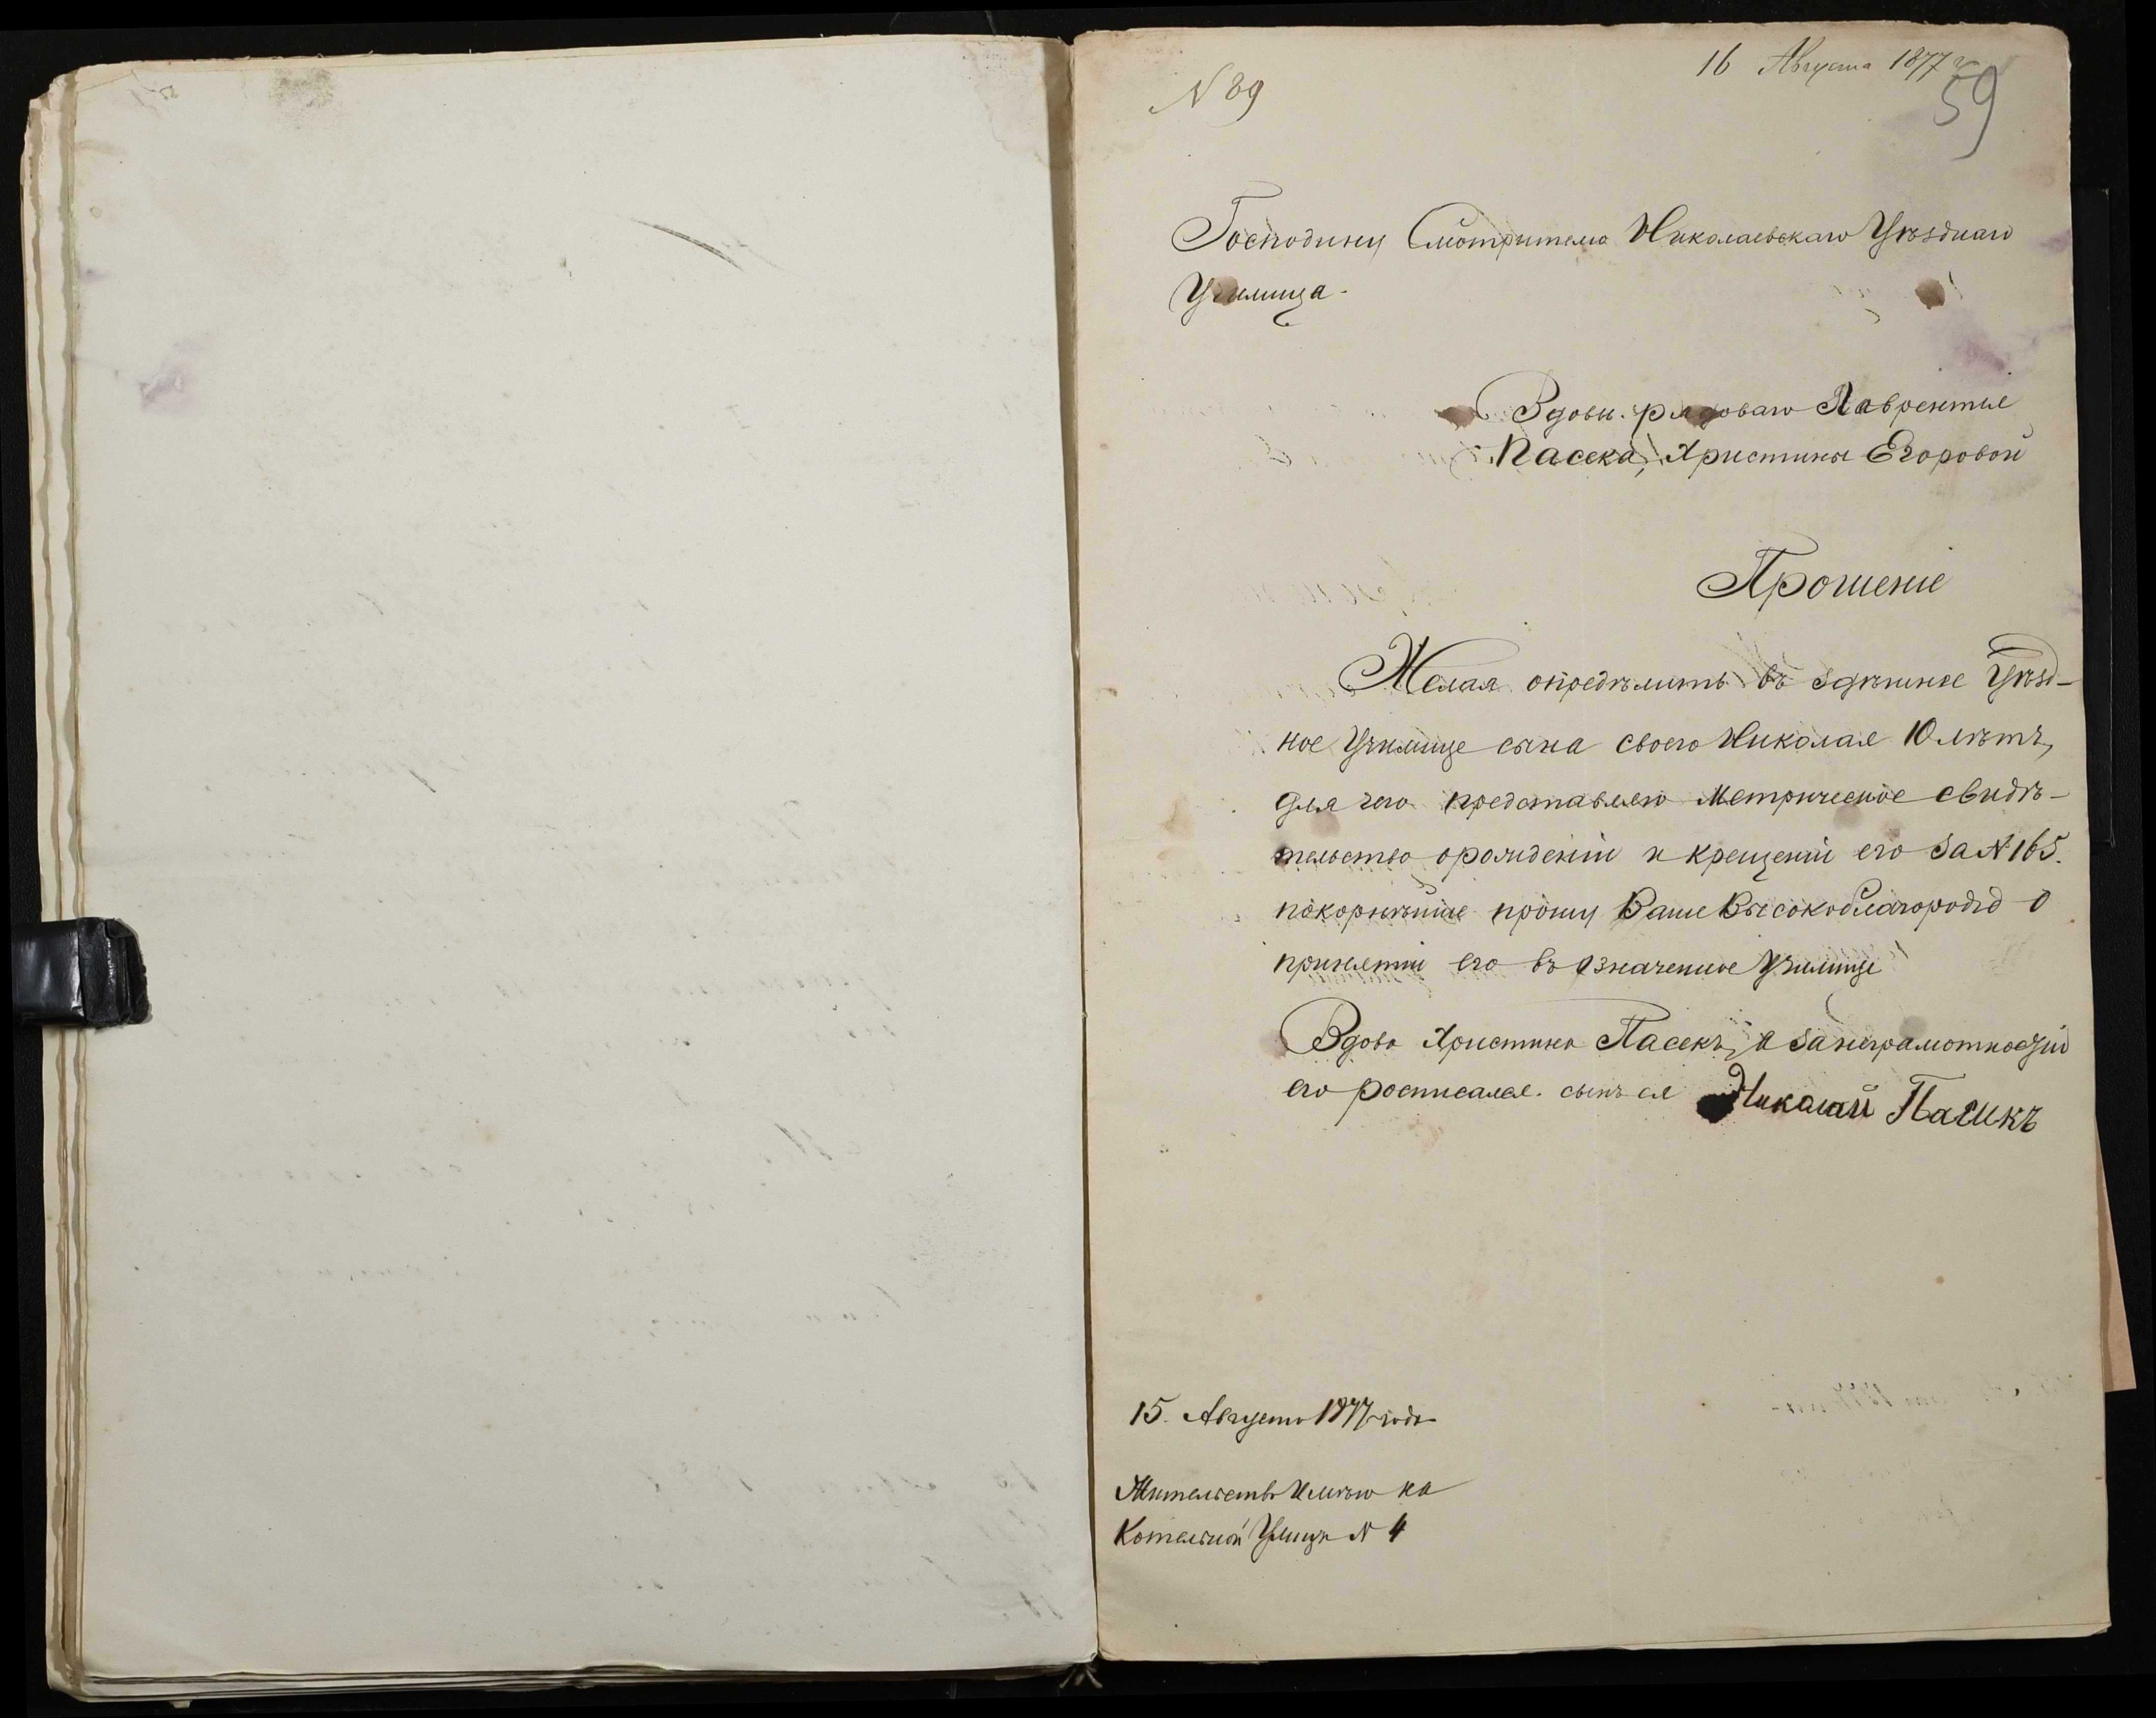 16 Августа 1877 г.
N 89
59
Господину Смотрителю Николаевскаго Уѣзднаго
Училища.
Вдовы рядоваго Лаврентие
Пасека, Христины Егоровой
Прошеніе
Желая опредѣлить въ здѣшнее Уѣзд-
ное Училище сына своего Николая 10 лѣтъ,
для чего представляю метрическое свидѣ-
тельство орождении и крещении его за N 165.
покорнѣйше прошу Ваше Высокоблагородіе о
принятии его въ означенное Училище
Вдова Христина Пасекъ, а занеграмотносзію
его росписался сынъ ея Николай Пасикъ
15. Августа 1877 года
Жительств Имѣю на
Котельной Улицѣ N 4